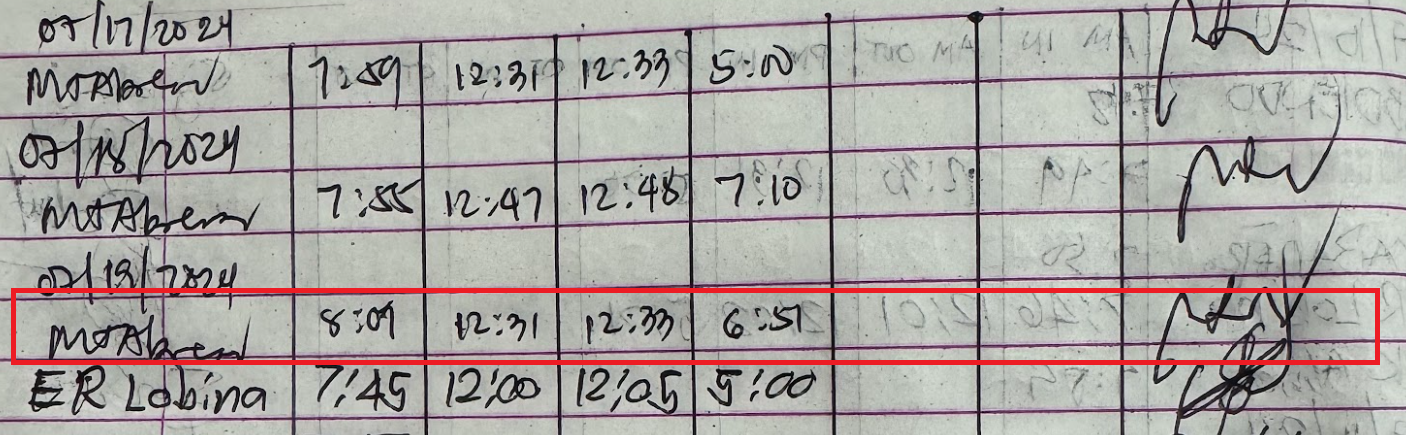 07/17/2024
MJAbrea 7:59 12:31 12:33 5:00
07/18/2024
MJAbrea 7:55 12:47 12:48 7:10
07/19/2024
MJAbrea 8:09 12:31 12:33 6:51
ER Lobina 7:45 12:00 12:05 5:00